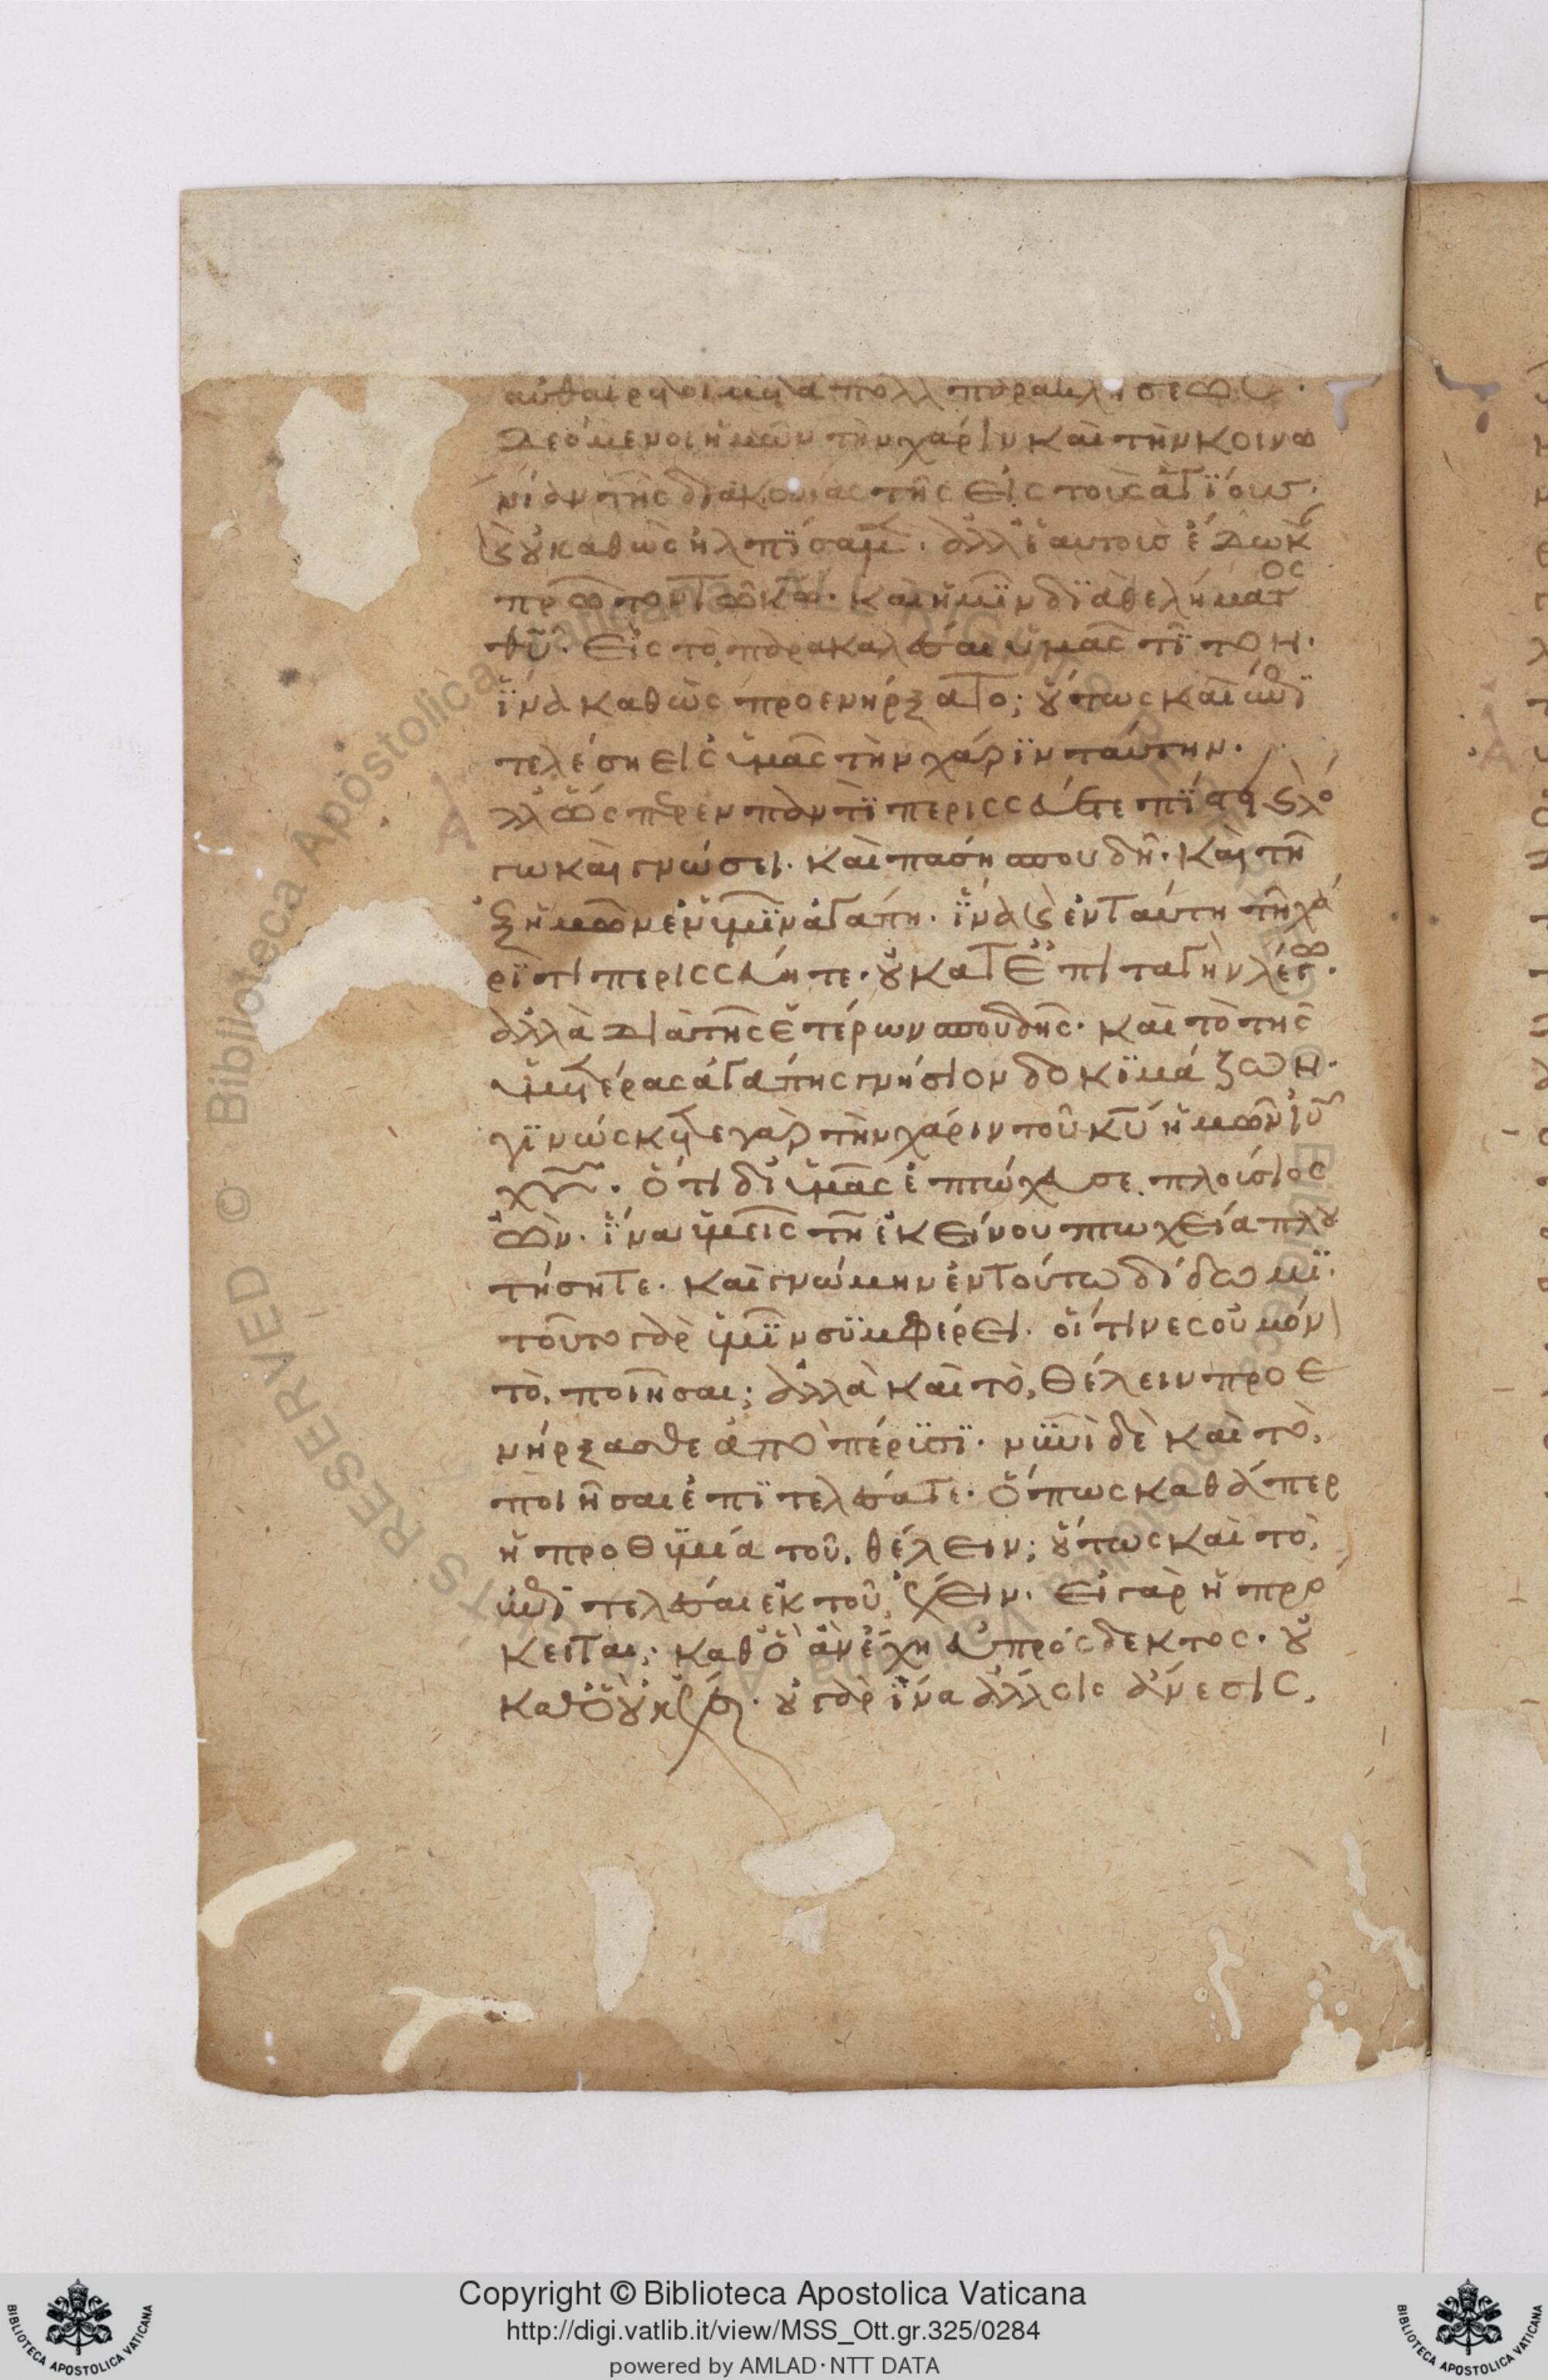 αὐθαίρετοι μετὰ πολλ παρακλήσεως·
δεόμενοι ἡμῶν τὴν χάριν καὶ τὴν κοινω
νίαν τῆς διακονίας τῆς εἰς τοὺς ἁγΐους·
ϗ οὐ καθὼς ἠλπΐσαμεν· ἀλλ' ἑαυτοὺς ἔδωκ
πρῶτον τῶ κω· καὶ ἡμῖν δϊὰ θελήματος
θῦ· εἰς τὸ παρακαλέσαι ὑμᾶς τΐτον·
ἵνα καθὼς προενήρξατο; οὕτως καὶ ἐπϊ
τελέση εἰς ὑμᾶς τὴν χάρϊν ταύτην·
λλ ὥσπερ ἐν παντῒ περισσεύετε πΐστει ϗ λό
γω καὶ γνώσει· καὶ πάση σπουδῆ· καὶ τῆ
ἐξ ἡμῶν ἐν ὑμῖν ἀγάπη· ἵνα ϗ ἐν ταύτη τῆ χά
ρϊτι περισσεύητε· οὐ κατ' ἐπιταγὴν λέγω·
ἀλλὰ διὰ τῆς ἑτέρων σπουδῆς· καὶ τὸ τῆς
ὑμετέρας ἀγάπης γνήσιον δοκϊμάζων·
γϊνώσκετε γὰρ τὴν χάριν τοῦ κῦ ἡμῶν ἰῦ
χῦ· ὅτι δι' ὑμᾶς ἐπτώχευσε πλούσιος
ὤν· ἵνα ὑμεῖς τῆ ἐκείνου πτωχεία πλου
τήσητε· καὶ γνώμην ἐν τούτω δίδωμϊ·
τοῦτο γὰρ ὑμῖν συμφέρει· οἵτινες οὐ μόν
τὸ ποιῆσαι; ἀλλὰ καὶ τὸ θέλειν προε
νήρξασθε ἀπὸ πέρϋσϊ· νυνὶ δὲ καὶ τὸ
ποιῆσαι ἐπϊτελέσατε· ὅπως καθάπερ
ἡ προθυμία τοῦ θέλειν; οὕτως καὶ τὸ
ἐπϊτελέσαι ἐκ τοῦ ἔχειν· εἰ γὰρ ἡ προ
κειται; καθ' ὃ ἂν ἔχη εὐπρόσδεκτος· οὐ
καθ' ὃ οὐκ ἔχει· οὐ γὰρ ἵνα ἄλλοις ἄνεσις,
Copyright © Biblioteca Apostolica Vaticana
http://digi.vatlib.it/view/MSS_Ott.gr.325/0284
powered by AMLAD·NTT DATA
BIBLIOTECA APOSTOLICA VATICANA
BIBLIOTECA APOSTOLICA VATICANA